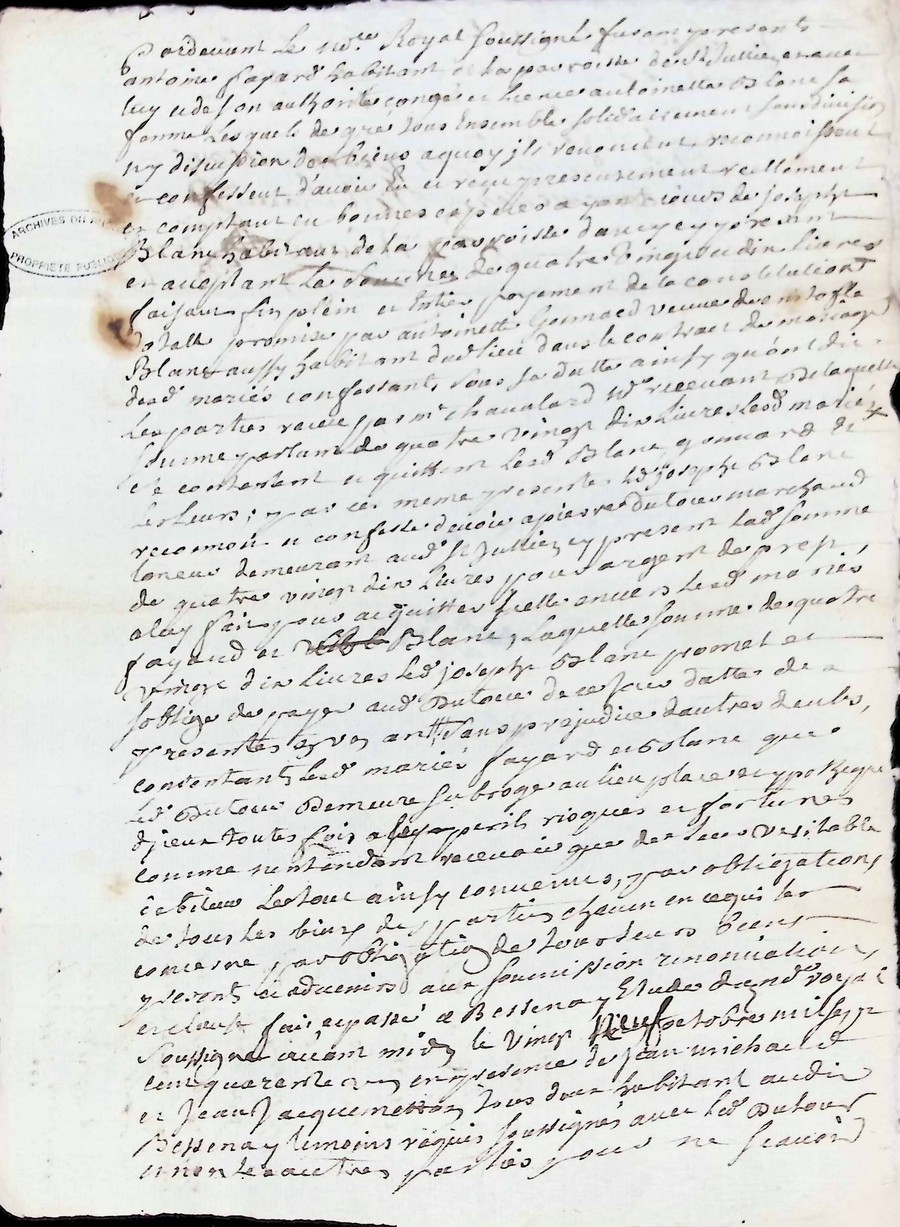 Pardevant le no.re Royal soussigné furent presents
antoine fayard habitant de la parroisse de St Jullien et avec
luy et de son authorité congé et licence antoinette Blanc sa
femme lesquels de gré tous Ensemble solidairement sans division
ny discussion de biens a quoy ils renoncent, reconnoissent
et confessent d'avoir Eu et reçu presentement reellement
et comptant en bonnes especes ayant cours de Joseph
Blanc habitant de la parroisse dancy cy present
et acceptant la somme de quatre vingt dix livres
faisant fin plein et Entier payement de la constitution
totalle promise par antoinette Gonnard veuve de
Blanc aussy habitant dud lieu dans le contract de mariage
desd mariés confessants, sous sa datte ainsy qu'ont dit
les parties receu par me chavalard no.re recevant De laquelle
somme partant de quatre vingt dix livres lesd mariés
se contentent et quittent lesd Blanc, gonnard et
les leurs; par ces meme presentes led joseph Blanc
reconnoit et confesse devoir a pierre Dutour marchand
taneur demeurant aud St Jullien cy present lad somme
de quatre vingt dix livres pour argent de prest,
a luy fait pour acquitter icelle envers lesd mariés
fayard et Blanc, laquelle somme de quatre
vingt dix livres led joseph Blanc promet et
soblige de payer aud Dutour de ce jour datte de
presentes en un an sans prejudice dautres deubs,
consentants lesd mariés fayard et Blanc que
led Dutour Demeure subrogé au lieu place et ypotheque
djeux toutes fois a ses perils risques et fortunes
comme nentendant recevoir que de leur veritable
debiteur le tout ainsy convenus, par obligations
de tous les biens des parties chacun en ce qui les
concerne par obligation de tous leurs biens
presents et advenirs aux soumission renonciations
et clauses fait et passé a Bessenay Etude dud no.re royal
soussigné avant midy le vingt neuf octobre mil sept
cent quarante en presence de jean michalet
et Jean Jacquemetton tous deux habitant audit
Bessenay temoins requis soussignés avec led Dutour
et non les autres parties pour ne scavoir
ARCHIVES DU
PROPRIETE PUBLIQUE